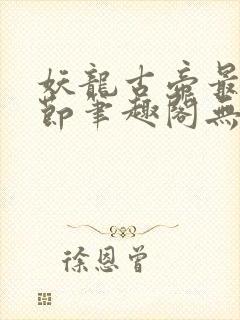 妖龍古帝最
節筆趣閣無
徐恩曾